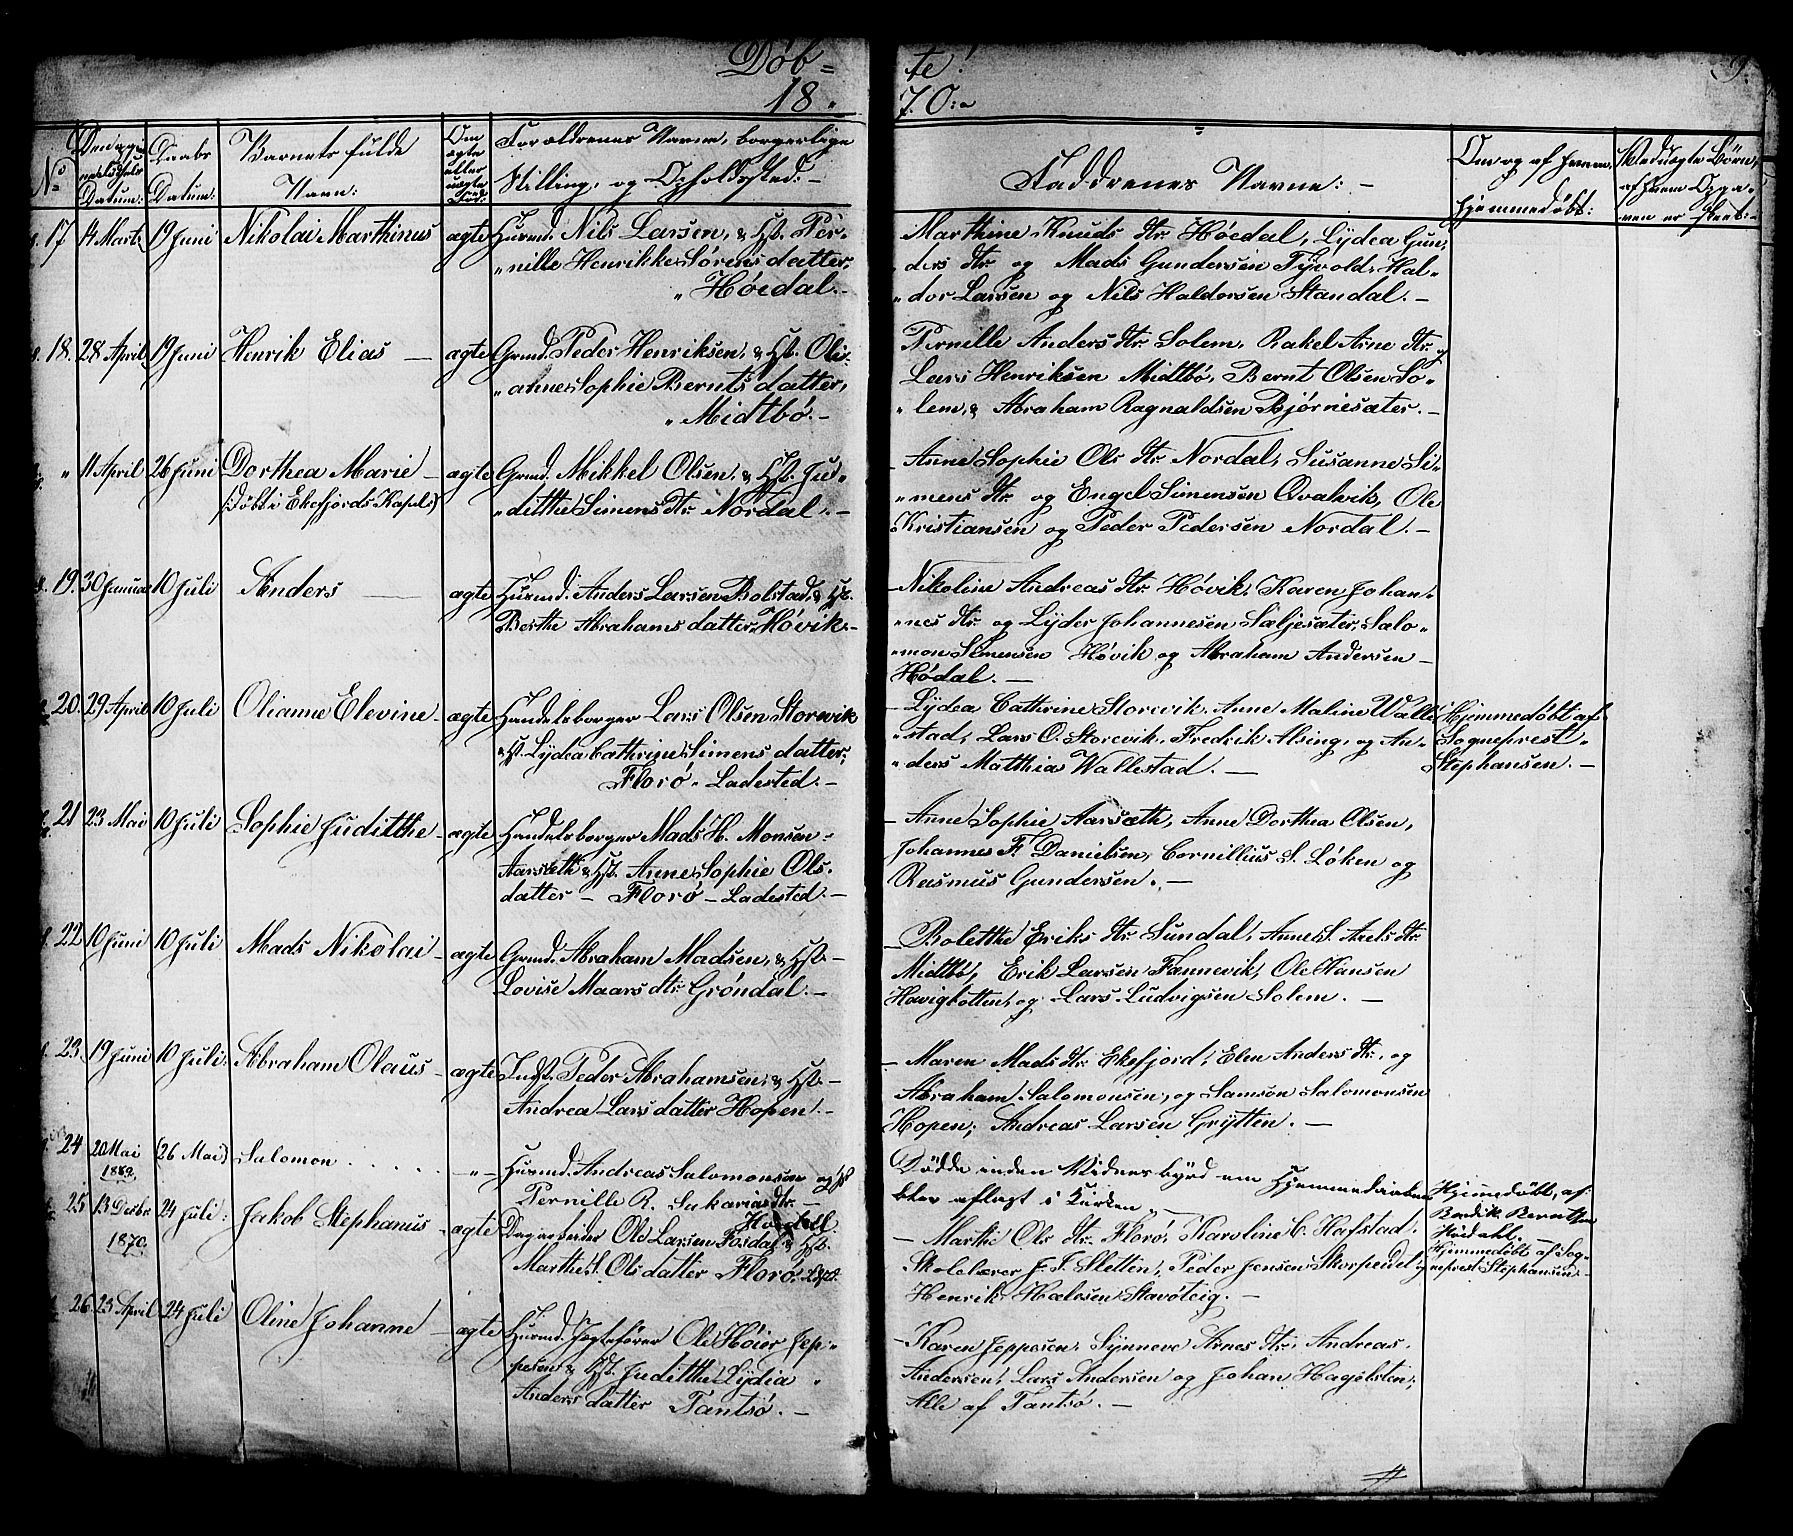 Døb=
te!
9.
18.
70:
No
Daabs
Datum:
Barnets fulde
Navn:
Om
ægte
eller
uægte
Født:
Forældrenes Navne, borgerlige
Stilling, og Opholdssted:
Faddrenes Navne:
Om og af hvem
hjemmedøbt:
17 14 Marts 19 Juni Nikolai Marthinus ægte Huusmd. Nils Larsen, & Hst. Per-
nille Henrikke Sørens datter,
Høidal.
Marthine Knuds dtr. Høidal, Lydea Gun-
ders dtr. og Mads Gundersen Tyvold, Hal-
dor Larsen og Nils Haldorsen Standal.
18. 28 April 19 Juni Henrik Elias ægte Grmd. Peder Henriksen, & Hst. Oli-
anne Sophie Bernts datter,
Midtbö.
Pernille Anders dtr. Solem, Rakel Arne dtr. og
Lars Henriksen Midtbö, Bernt Olsen So-
lem, & Abraham Ragnaldsen Bjørnesæter.
" 11 April 26 Juni Dorthea Marie ægte Grmd. Mikkel Olsen, & Hst. Ju-
(Döbt i Ekefjords Kapel) ditthe Simens dtr. Nordal.
Anne Sophie Ols dtr. Nordal, Susanne Si-
mens dtr. og Engel Simensen Qvalvik, Ole
Kristiansen og Peder Pedersen Nordal.
19. 30 Januar 10 Juli Anders ægte Huusmd. Anders Larsen Bolstad, & Hst.
Berthe Abrahams datter Høvik.
Nikoline Andreas dtr. Høvik, Karen Johan-
nes dtr. og Lyder Johannesen Sæljesæter, Salo-
mon Simensen Høvik og Abraham Andersen
Hødal.
20. 29 April 10 Juli Olianne Elevine ægte Handelsborger Lars Olsen Storevik
& Hst. Lydea Cathrine Simens datter,
Florö Ladested.
Lydea Cathrine Storevik, Anne Maline Walle-
stad, Lars O. Storevik, Fredrik Alsing, og An-
ders Matthias Wallestad.
Hjemmedøbt af
Sogneprest
Stephansen.
21 23 Mai 10 Juli Sophie Juditthe ægte Handelsborger Mads H. Monsen
Aarsæth & Hst. Anne Sophie Ols
datter Florö Ladested.
Anne Sophie Aarsæth, Anne Dorthea Olsen,
Johannes F. Danielsen, Cornillius S. Løken og
Rasmus Gundersen.
22 10 Juni 10 Juli Mads Nikolai ægte Grmd. Abraham Madsen, & Hst.
Lovise Maars dtr. Gröndal.
Bolethe Eriks dtr. Sundal, Anne S. Axels dtr.
Midtbö, Erik Larsen Fannevik, Ole Hansen
og Lars Ludvigsen Solem.
23. 19 Juni 10 Juli Abraham Olaus ægte Indst. Peder Abrahamsen, & Hst.
Andrea Lars datter Hopen.
Maren Mads dtr. Ekefjord, Elen Anders dtr. og
Abraham Salomonsen, og Samson Salomonsen
Hopen, Andreas Larsen Grytten.
24 20 Mai (26 Mai) Salomon " Huusmd. Andreas Salomonsen og Hst
Pernille R. Sakarias dtr.
Dödde inden Vidnesbyrd om Hjemmedaaben
blev aflagt i Kirken.
Hjemmedöbt af
Bendik Berntsen
Höidahl.
1869.
25 13 Decbr. 24 Juli Jakob Stephanus ægte Dagarbeider Ole Larsen Fosdal & Hst.
Marthe S. Ols datter Florö Lsted.
Marthe Ols dtr. Florö, Karoline C. Hafstad,
Skolelærer J. J. Sletten, Peder Jensen Skorpeidet og
Henrik Hælesen Stavöteig.
Hjemmedöbt af Sog-
neprest Stephansen.
1870.
26 23 April 24 Juli Oline Johanne ægte Huusmd. Jægtefører Ole Höier Jep-
pesen & Hst. Juditthe Lydia
Anders datter Tantsö.
Karen Jeppesen, Synneve Arnes dtr., Andreas
Andersen, Lars Andersen og Johan Hagelsten,
Alle af Tantsö.